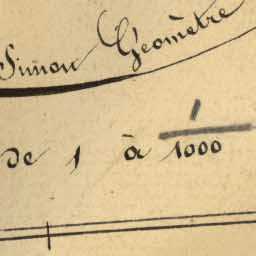 Simon Géomètre
de 1 à 1/1000